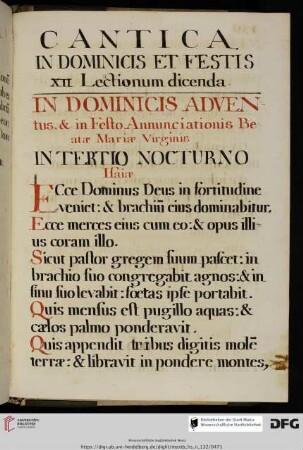 CANTICA
IN DOMINICIS ET FESTIS
XII Lectionum dicenda
IN DOMINICIS ADVEN-
tus. & in Festo Annunciationis Be
atæ Mariæ Virginis
IN TERTIO NOCTURNO
Isaiæ
ECce Dominus Deus in fortitudine
veniet: & brachiũ eius dominabitur.
Ecce merces eius cum eo: & opus illi-
us coram illo.
Sicut pastor gregem suum pascet: in
brachio suo congregabit agnos: & in
sinu suo levabit: fœtas ipse portabit.
Quis mensus est pugillo aquas: &
cælos palmo ponderavit.
Quis appendit tribus digitis molẽ
terræ: & libravit in pondere montes,
UNIVERSITÄTS-
BIBLIOTHEK
HEIDELBERG
Bibliotheken der Stadt Mainz
Wissenschaftliche Stadtbibliothek
DFG
Wissenschaftliche Stadtbibliothek Mainz